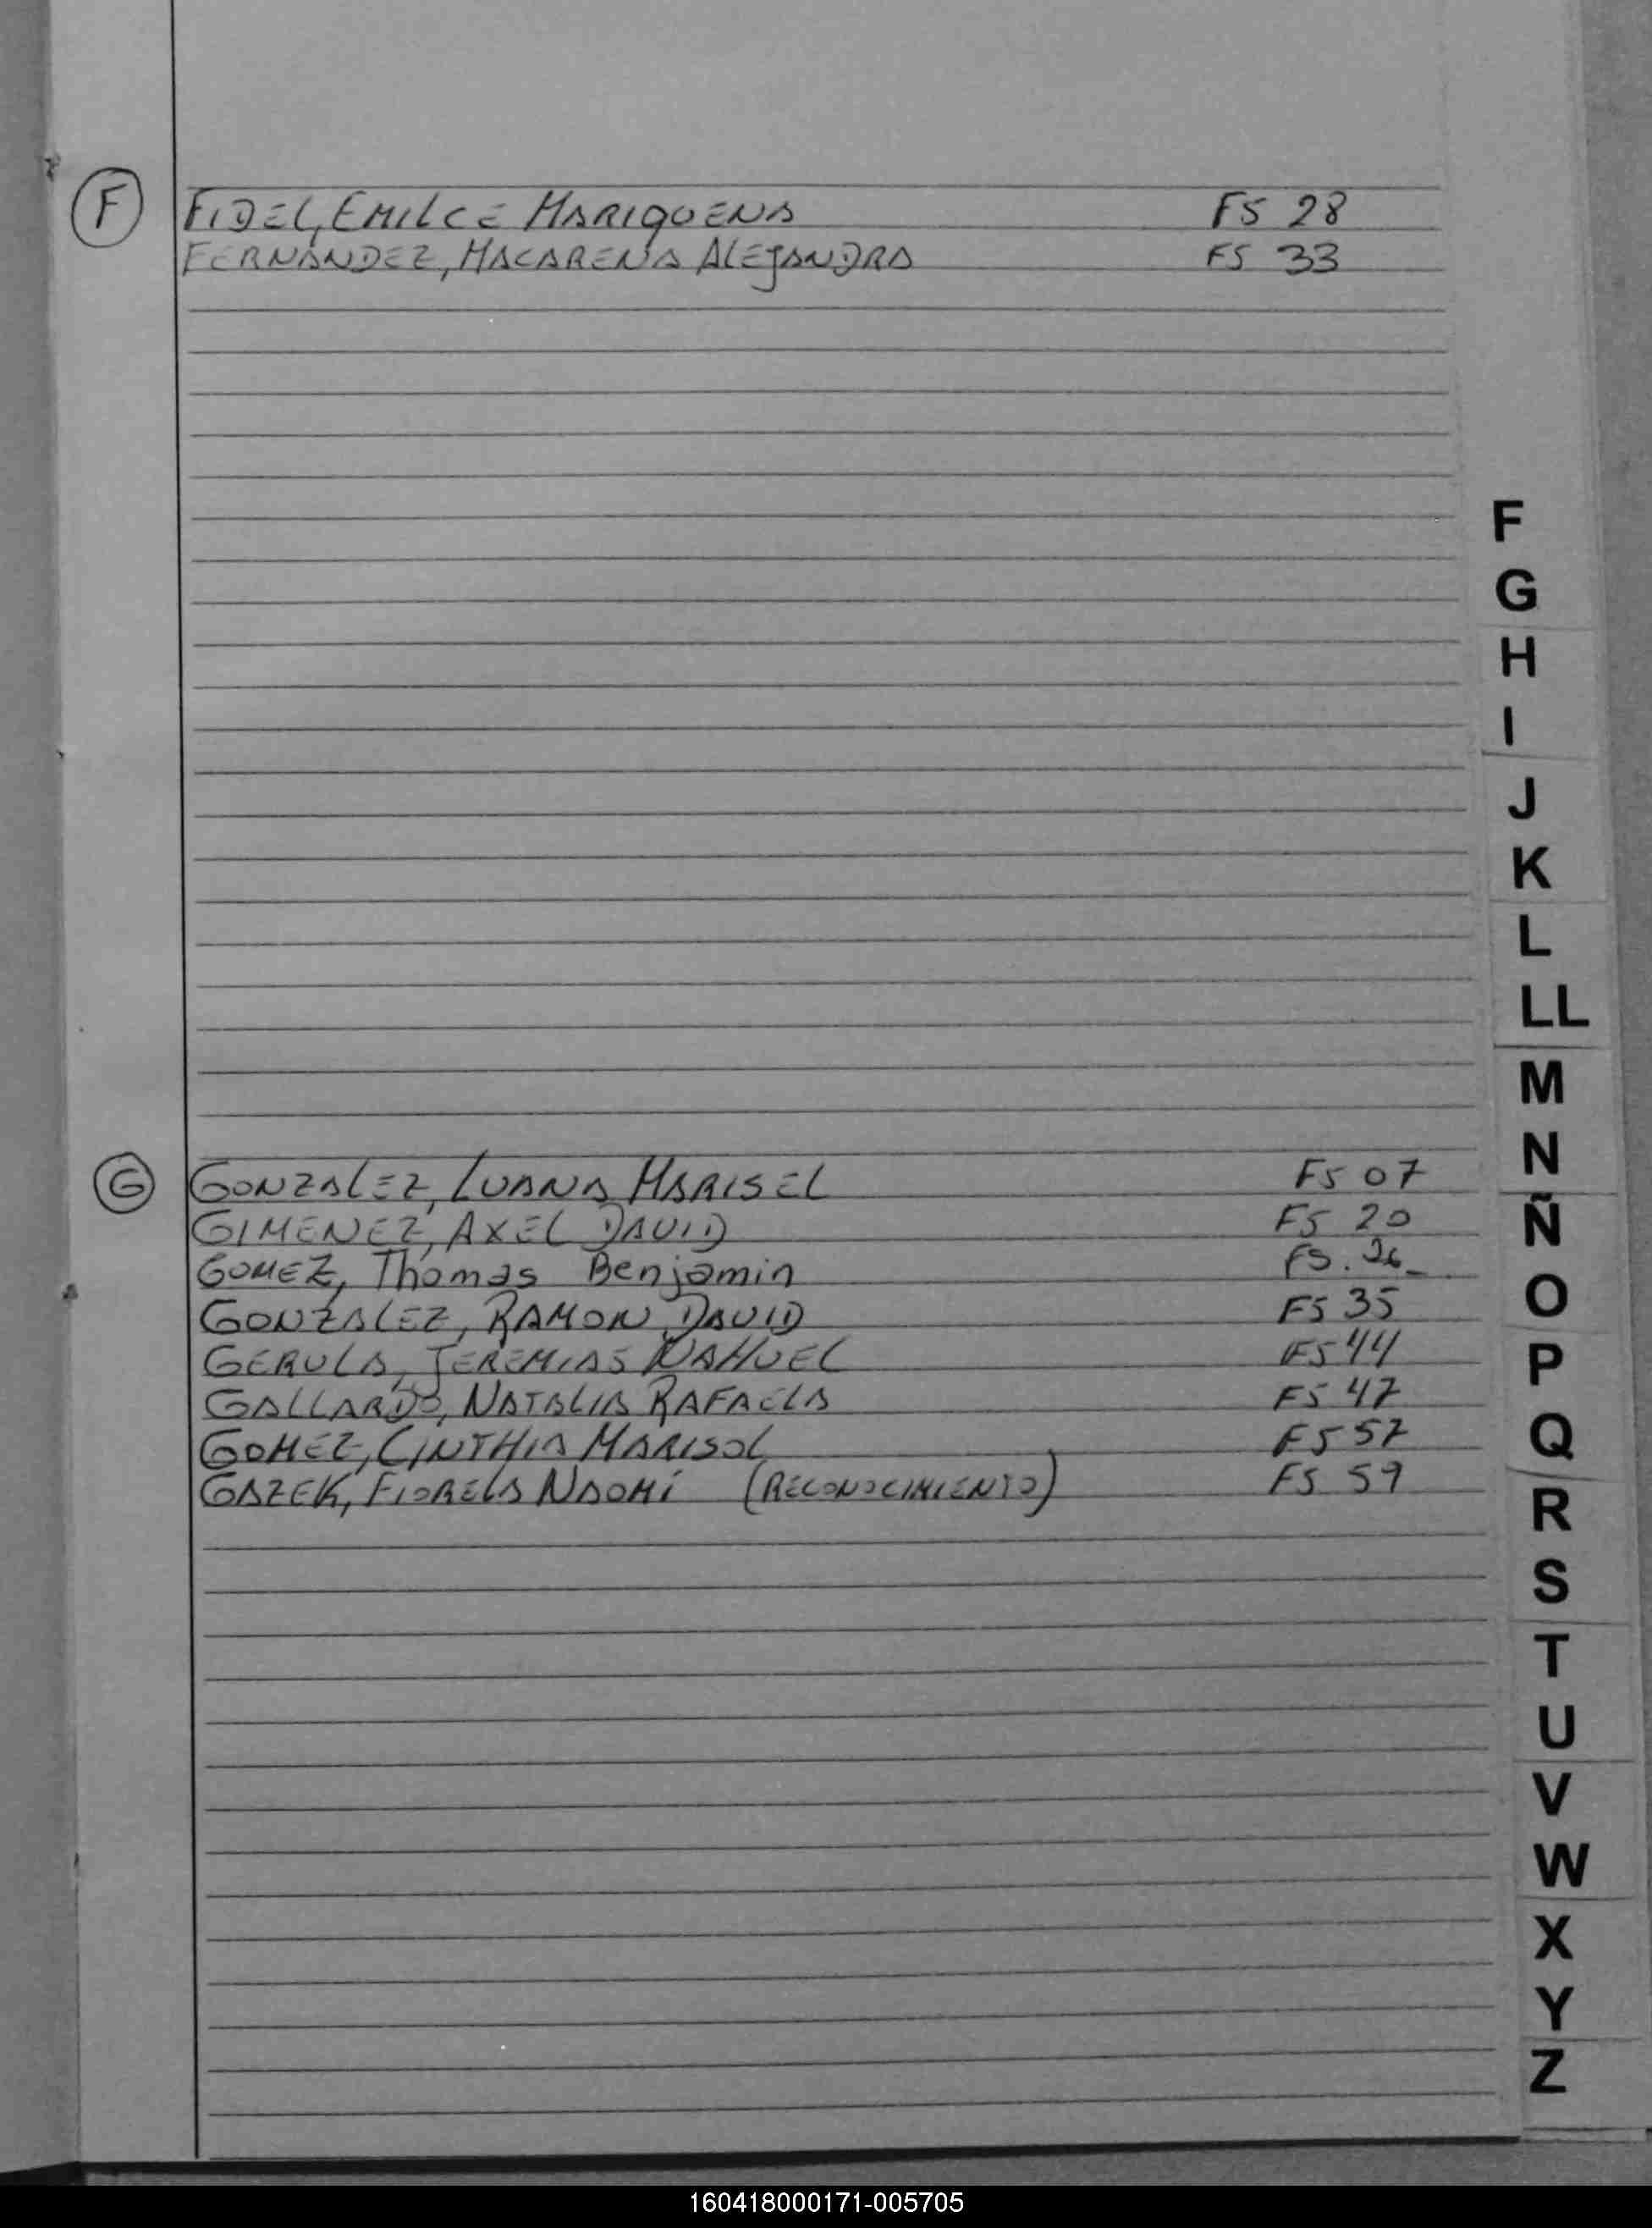 F FIDEL, EMILCE MARIQUENA FS 28
FERNANDEZ, MACARENA ALEJANDRA FS 33
G GONZALEZ, LUANA MARISEL FS 07
GIMENEZ, AXEL DAVID FS 20
GOMEZ, Thomas Benjamin FS. 26_
GONZALEZ, RAMON DAVID FS 35
GERULA, JEREMIAS NAHUEL FS 44
GALLARDO, NATALIA RAFAELA FS 47
GOMEZ, CINTHIA MARISOL FS 57
GAZEK, FIORELA NAOMÍ (RECONOCIMIENTO) FS 59
F
G
H
I
J
K
L
LL
M
N
Ñ
O
P
Q
R
S
T
U
V
W
X
Y
Z
160418000171-005705